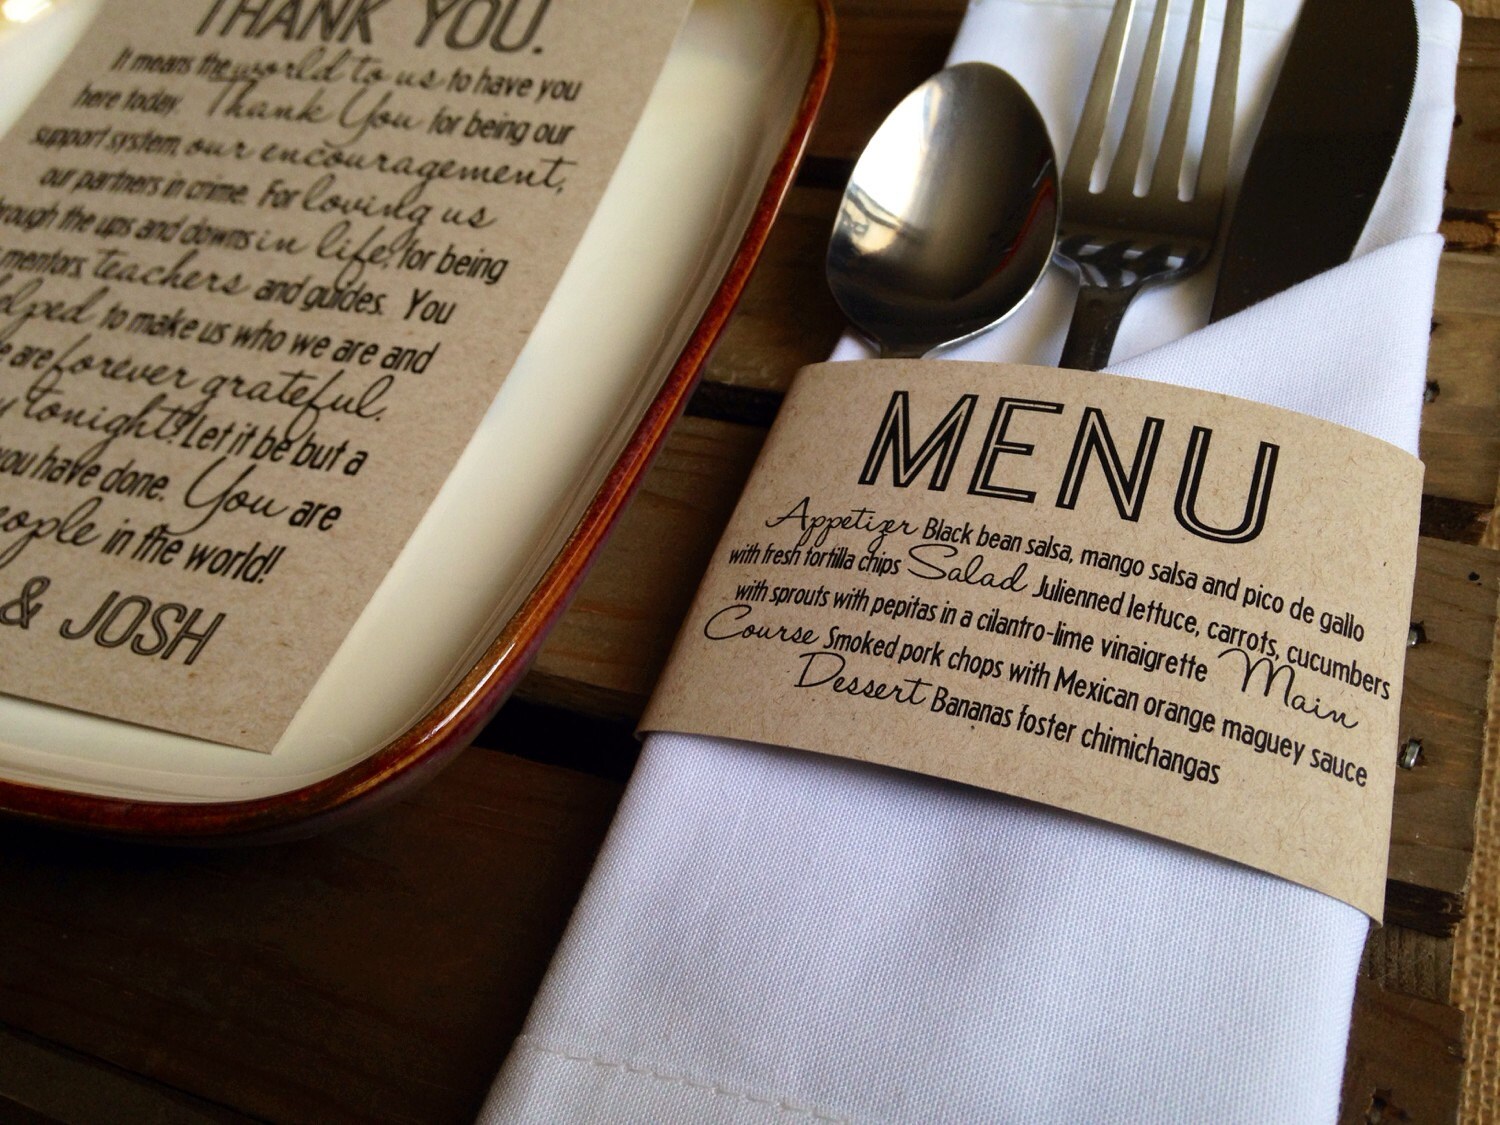 THANK YOU.
It means the world to us to have you
here today. Thank You for being our
support system, our encouragement,
our partners in crime. For loving us
through the ups and downs in life, for being
mentors, teachers and guides. You
helped to make us who we are and
are forever grateful.
tonight! Let it be but a
you have done. You are
people in the world!
& JOSH
MENU
Appetizer Black bean salsa, mango salsa and pico de gallo
with fresh tortilla chips Salad Julienned lettuce, carrots, cucumbers
with sprouts with pepitas in a cilantro-lime vinaigrette Main
Course Smoked pork chops with Mexican orange maguey sauce
Dessert Bananas foster chimichangas